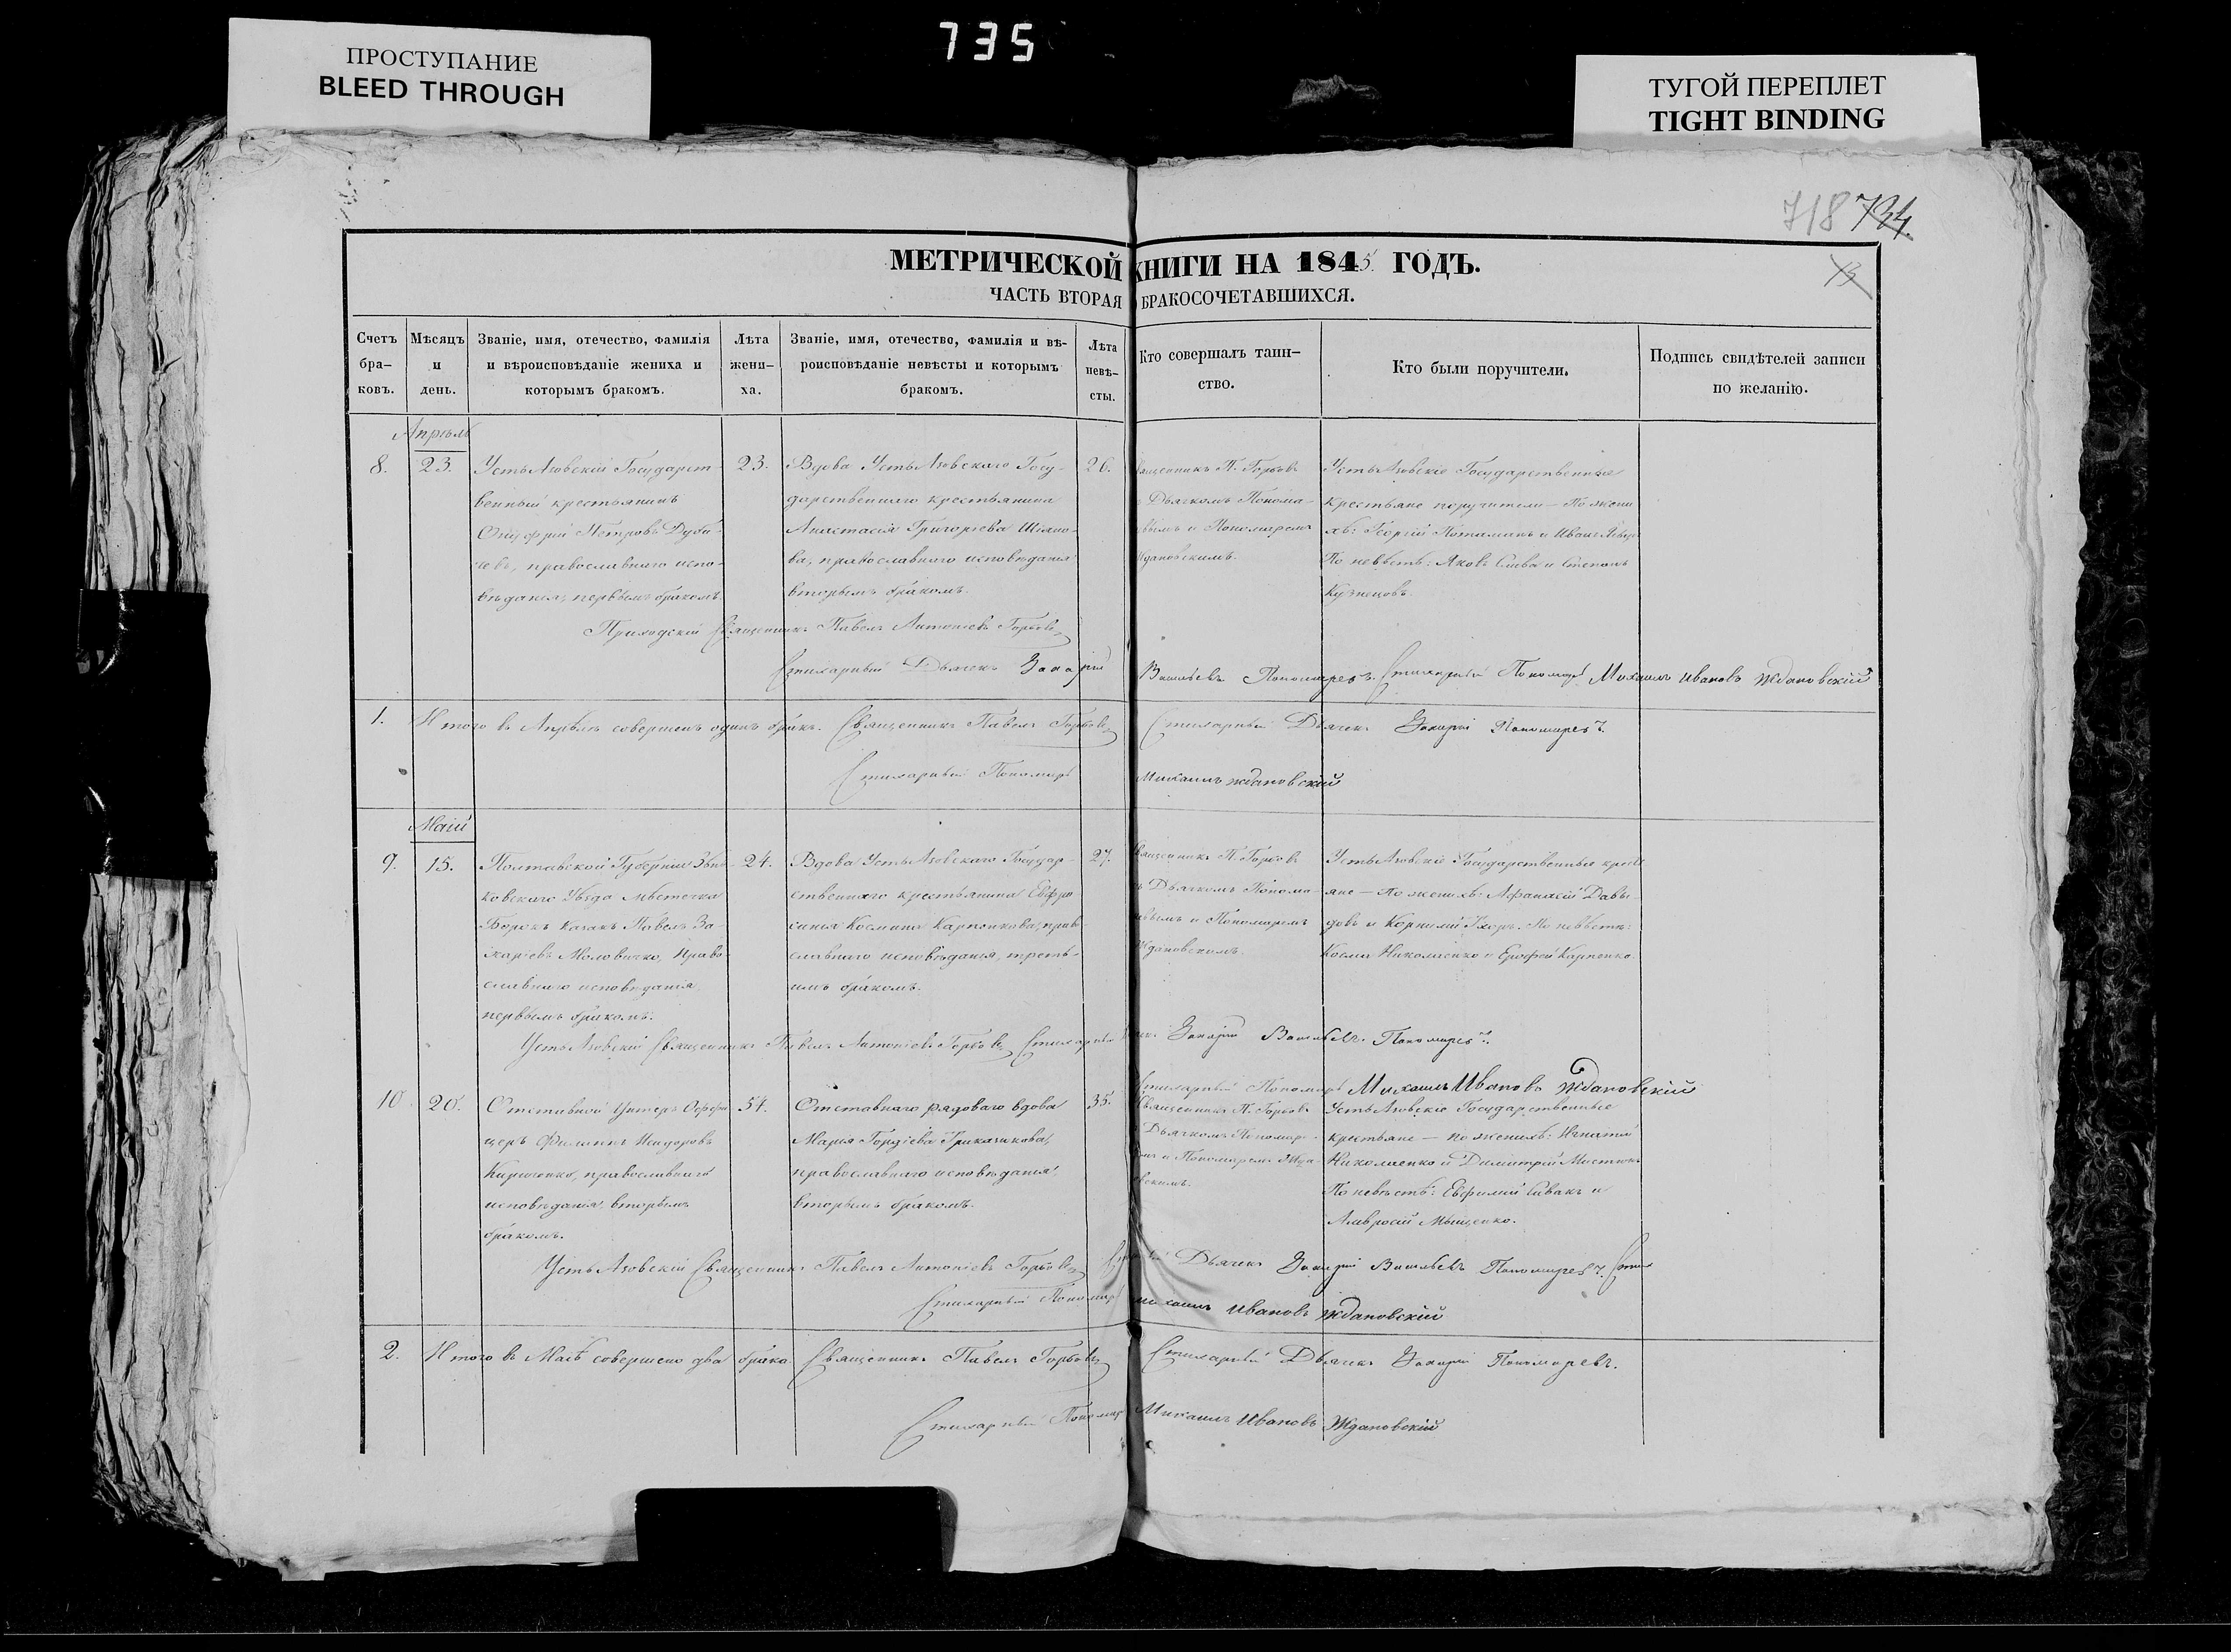 735
ПРОСТУПАНИЕ
BLEED THROUGH
ТУГОЙ ПЕРЕПЛЕТ
TIGHT BINDING
718 734.
МЕТРИЧЕСКОЙ КНИГИ НА 1845 ГОДЪ.
ЧАСТЬ ВТОРАЯ О БРАКОСОЧЕТАВШИХСЯ.
Счетъ бра-
ковъ.
Мѣсяцъ
и
день.
Званіе, имя, отечество, фамилія
и вѣроисповѣданіе жениха и
которымъ бракомъ.
Лѣта
жени-
ха.
Званіе, имя, отечество, фамилія и вѣ-
роисповѣданіе невѣсты и которымъ
бракомъ.
Лѣта
невѣ-
сты.
Кто совершалъ таин-
ство.
Кто были поручители.
Подпись свидѣтелей записи
по желанію.
Апрѣль
8.
23.
Усть Азовскій Государст-
венный крестьянинъ
Онуфрій Петровъ
православнаго испо-
вѣданія, первымъ бракомъ.
23.
Вдова Усть Азовскаго Госу-
дарственнаго крестьянина
Анастасія Григорьева
ва, православнаго исповѣданія
вторымъ бракомъ.
26.
Священникъ П. Горбовъ
Дьячкомъ Понома-
ревымъ и Пономаремъ
Ждановскимъ.
Усть Азовскіе Государственные
крестьяне поручители — По жени
хѣ: Георгій и Иванъ
По невѣстѣ: Яковъ и Степанъ
Кузнецовъ.
Приходскій Священникъ Павелъ Антоніевъ Горбовъ
Стихарный Дьячекъ Захарій Васильевъ Пономаревъ. Стихарный Пономарь Михаилъ Ивановъ Ждановскій
1.
Итого въ Апрѣлѣ совершенъ одинъ бракъ. Священникъ Павелъ Горбовъ Стихарный Дьячекъ Захарій Пономаревъ.
Стихарный Пономарь Михаилъ Ждановскій
Маій
9.
15.
Полтавской Губерніи Зѣнь-
ковскаго Уѣзда мѣстечка
Борокъ казакъ Павелъ За-
харіевъ Право-
славнаго исповѣданія
первымъ бракомъ.
24.
Вдова Усть Азовскаго Государ-
ственнаго крестьянина Евфро
синія Космина Карпенкова, право
славнаго исповѣданія, треть-
имъ бракомъ.
27.
Священникъ П. Горбовъ
съ Дьячкомъ Понома-
ревымъ и Пономаремъ
Ждановскомъ.
Усть Азовскіе Государственные кресть
яне — по женихѣ: Афанасій Давы-
довъ и Корнилій По невѣстѣ:
Косма Николаенко и Ерофей Карпенко.
Усть Азовскій Священникъ Павелъ Антоніевъ Горбовъ Стихарный Дьячекъ Захарій Васильевъ Пономаревъ.
Стихарный Пономарь Михаилъ Ивановъ Ждановскій
10.
20.
Отставной Унтеръ Офи-
церъ Филиппъ Исидоровъ
православнаго
исповѣданія, вторымъ
бракомъ.
54.
Отставнаго рядоваго вдова
Марія Гордіева
православнаго исповѣданія,
вторымъ бракомъ.
35.
Священникъ П. Горбовъ
Дьячкомъ Пономаре-
вымъ и Пономаремъ Жда-
новскимъ.
Усть Азовскіе Государственные
крестьяне — по женихѣ: Игнатій
Николаенко и Димитрій
По невѣстѣ: Евфимій Сивакъ и
Амвросій Мищенко.
Усть Азовскій Священникъ Павелъ Антоніевъ Горбовъ Стихарный Дьячекъ Захарій Васильевъ Пономаревъ. Стих
Стихарный Пономарь Михаилъ Ивановъ Ждановскій
2.
Итого въ Маѣ совершено два брака Священникъ Павелъ Горбовъ Стихарный Дьячекъ Захарій Пономаревъ.
Стихарный Пономарь Михаилъ Ивановъ Ждановскій